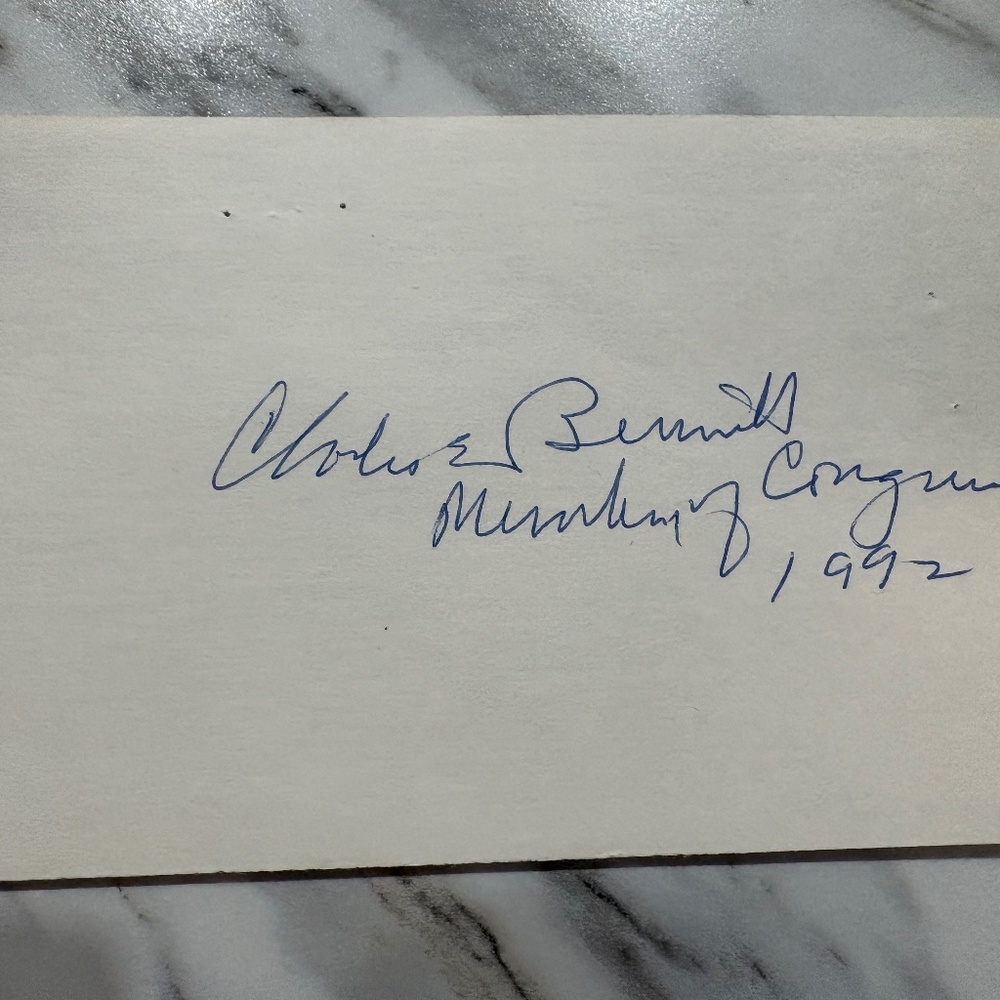 Charles E Bennett
Member of Congress
1992